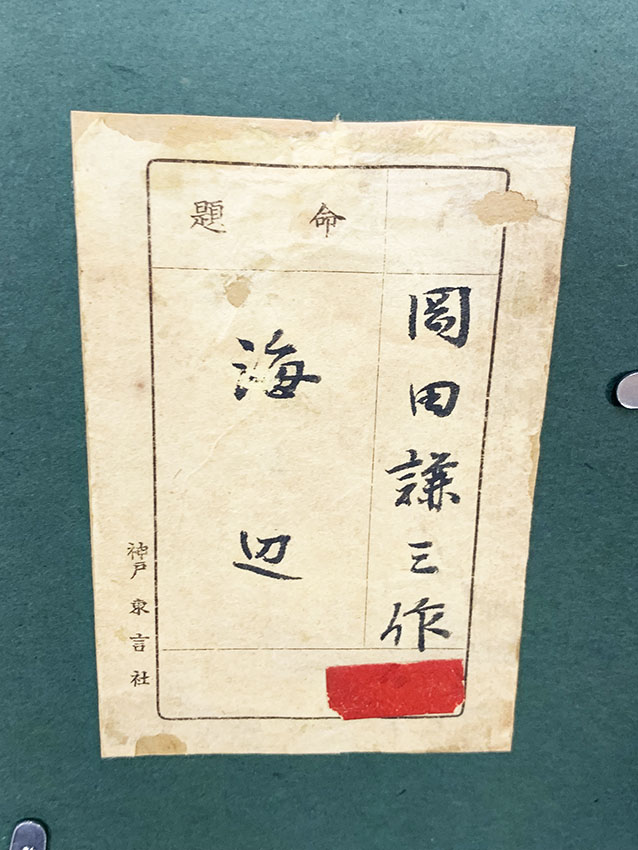 命題
岡田謙三作
海辺
神戸 東言社